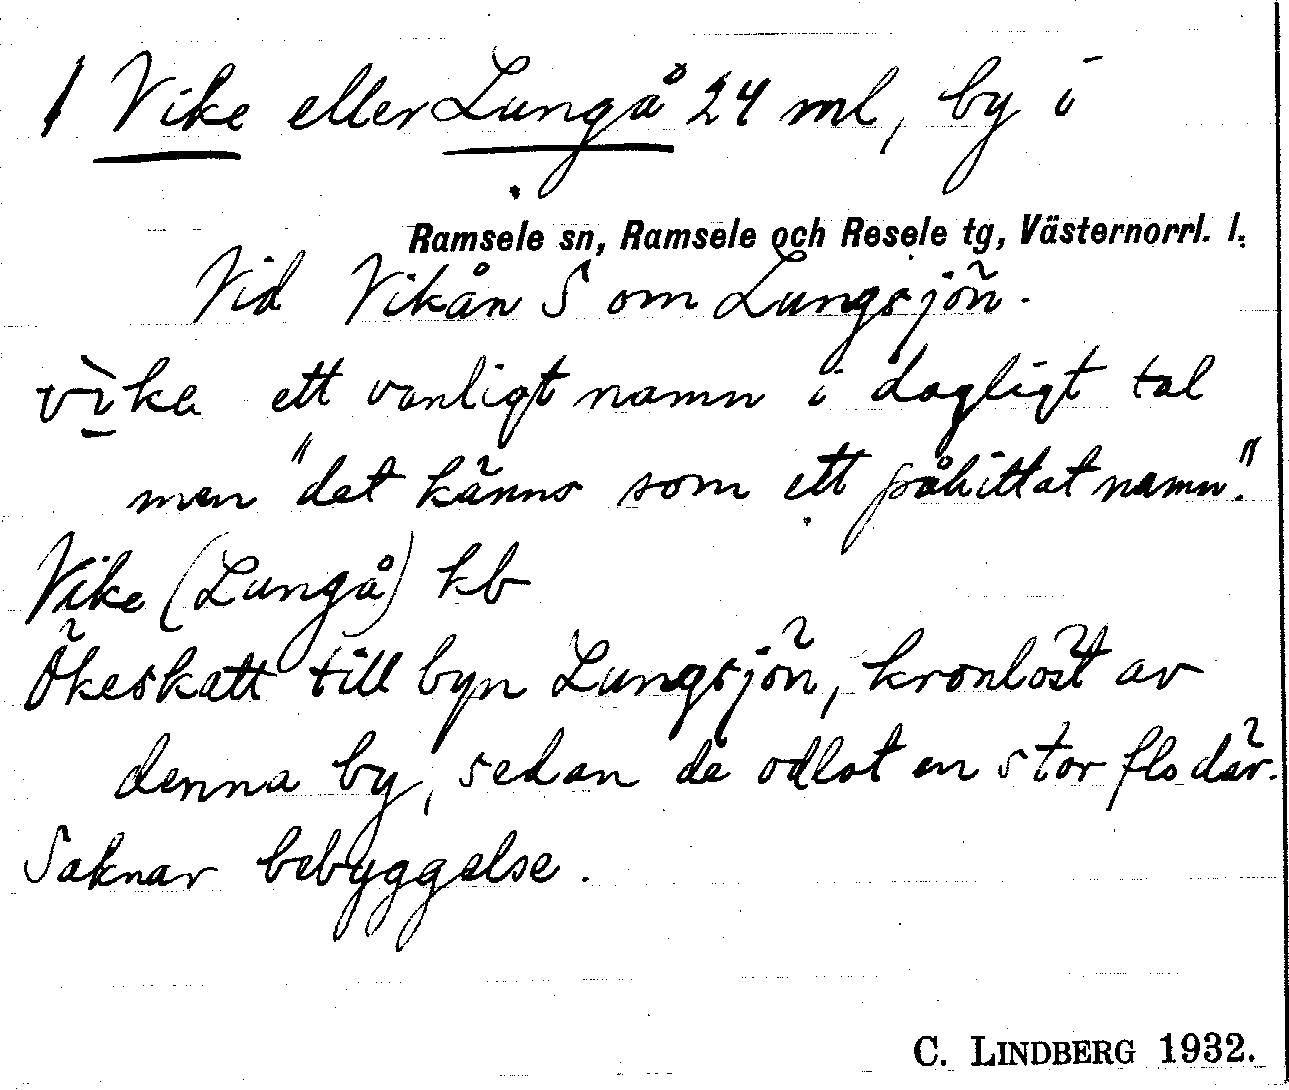 1 Vike eller Lungå 24 ml, by i
Ramsele sn, Ramsele och Resele tg, Västernorrl. l.
Vid Vikån S om Lungsjön.
vìke ett vanligt namn i dagligt tal
men "det känns som ett påhittat namn."
Vike (Lungå) kb
Ökeskatt till byn Lungsjön, kronlöst av
denna by, sedan de odlat en stor flo där.
Saknar bebyggelse.
C. LINDBERG 1932.